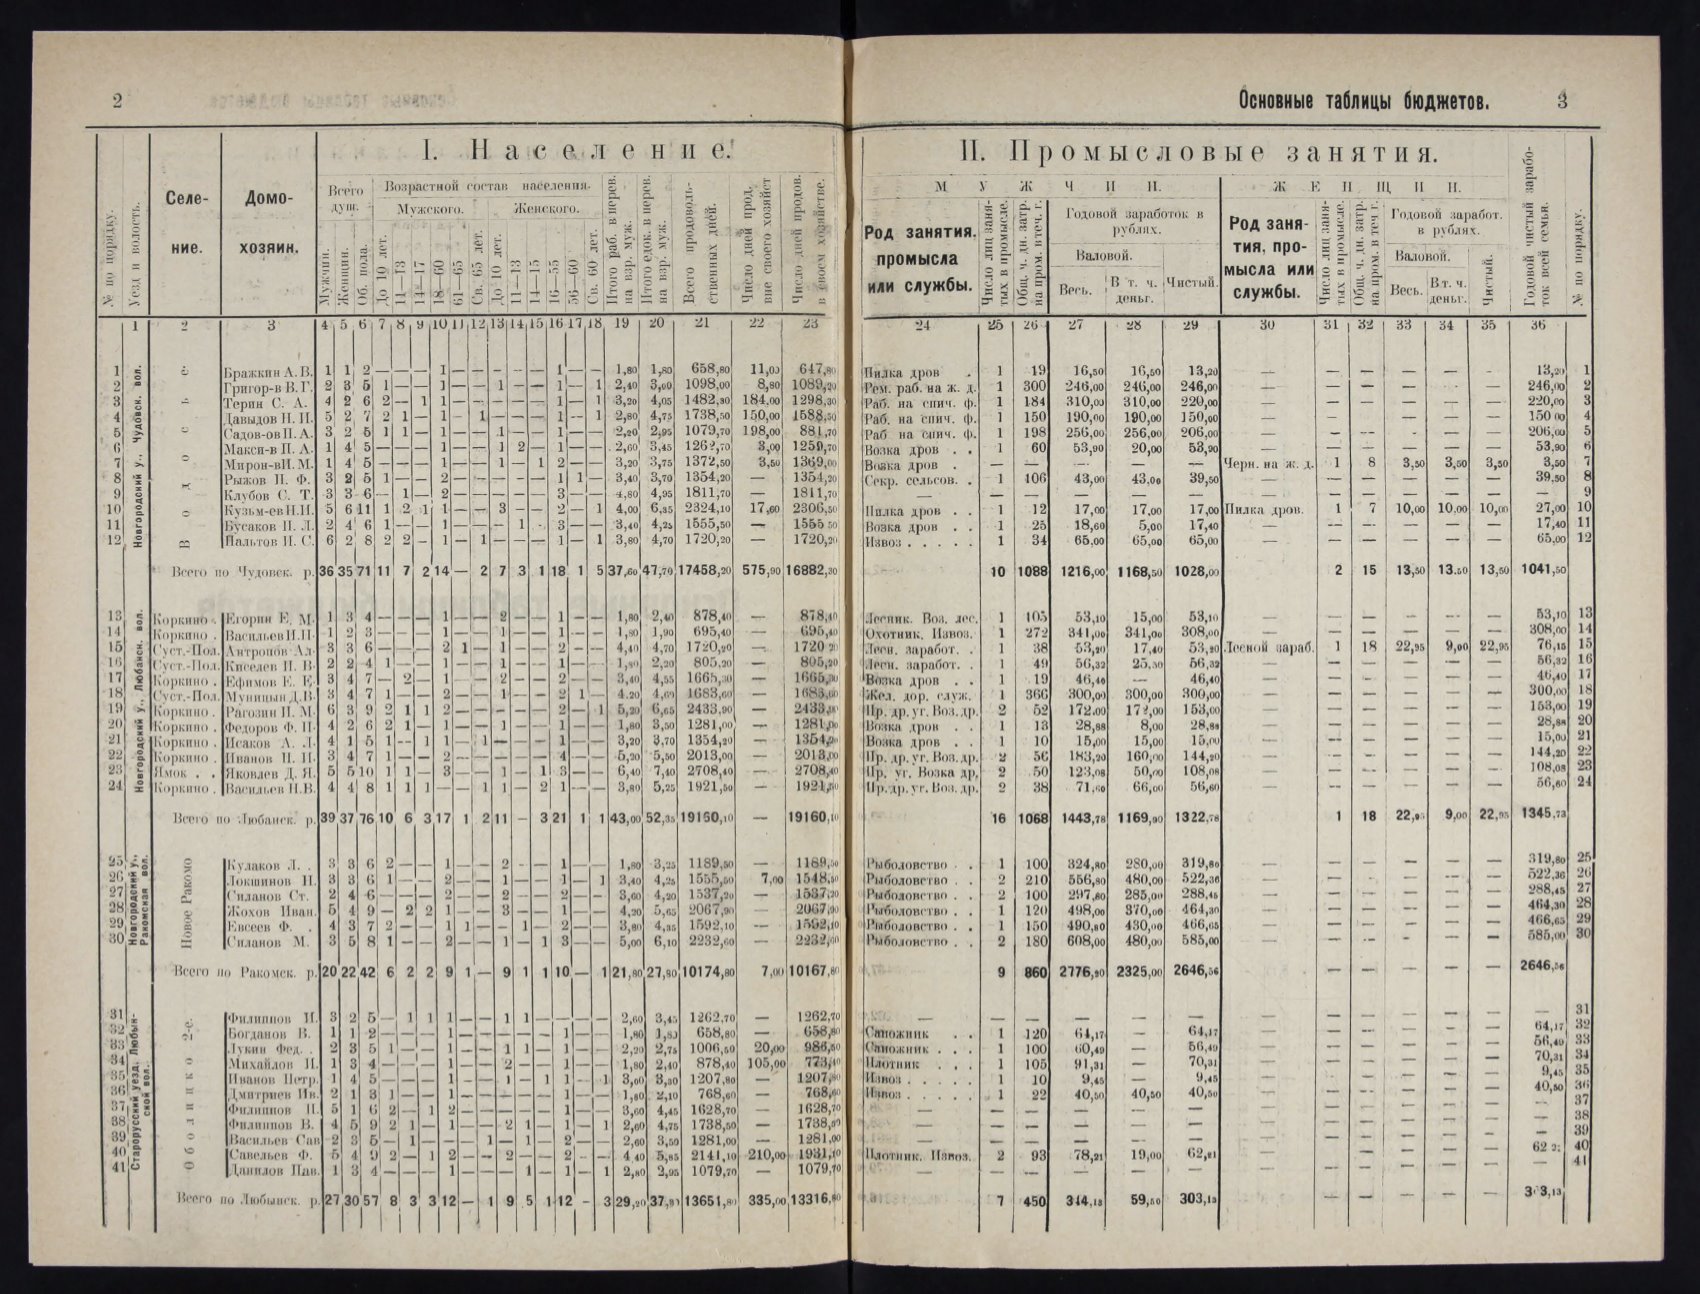 2
I. Население.
№ по порядку.
Уезд и волость.
Селе-
ние.
Домо-
хозяин.
Всего
душ.
Возрастной состав населения.
Мужского.
Женского.
Мужчин.
Женщин.
Об. пола.
До 10 лет.
11—13
14—17
18—60
61—65
Св. 65 лет.
До 10 лет.
11—13
14—15
16—55
56—60
Св. 60 лет.
Итого раб. в перев.
на взр. муж.
Итого едок. в перев.
на взр. муж.
Всего продоволь-
ственных дней.
Число дней прод.
вне своего хозяйст
Число дней продов.
в своем хозяйстве.
1 2 3 4 5 6 7 8 9 10 11 12 13 14 15 16 17 18 19 20 21 22 23
Новгородский у., Чудовск. вол.
1 Бражкин А. В. 1 1 2 — — — 1 — — — — — 1 — — 1,80 1,80 658,80 11,00 647,80
2 Григор-в В. Г. 2 3 5 1 — — 1 — — 1 — — 1 — 1 2,40 3,00 1098,00 8,80 1089,20
3 Терин С. А. 4 2 6 2 — 1 1 — — — — — 1 — 1 3,20 4,05 1482,30 184,00 1298,30
4 Давыдов Н. И. 5 2 7 2 1 — 1 — 1 — — — 1 — 1 2,80 4,75 1738,50 150,00 1588,50
5 Садов-ов П. А. 3 2 5 1 1 — 1 — — 1 — — 1 — — 2,20 2,95 1079,70 198,00 881,70
6 Макси-в П. А. 1 4 5 — — — 1 — — 1 2 — 1 — — 2,60 3,45 1262,70 3,00 1259,70
7 Мирон-в И. М. 1 4 5 — — — 1 — — 1 — 1 2 — — 3,20 3,75 1372,50 3,50 1369,00
8 Рыжов П. Ф. 3 2 5 1 — — 2 — — — — — 1 1 — 3,40 3,70 1354,20 — 1354,20
9 Клубов С. Т. 3 3 6 — 1 — 2 — — — — — 3 — — 4,80 4,95 1811,70 — 1811,70
10 Кузьм-ев Н. И. 5 6 11 1 2 1 1 — — 3 — — 2 — 1 4,00 6,35 2324,10 17,60 2306,50
11 Бусаков П. Л. 2 4 6 1 — — 1 — — — 1 — 3 — — 3,40 4,25 1555,50 — 1555,50
12 Пальтов И. С. 6 2 8 2 2 — 1 — 1 — — — 1 — 1 3,80 4,70 1720,20 — 1720,20
Всего по Чудовск. р. 36 35 71 11 7 2 14 — 2 7 3 1 18 1 5 37,60 47,70 17458,20 575,90 16882,30
Новгородский у., Любанск. вол.
13 Коркино . Егорин Е. М. 1 3 4 — — — 1 — — 2 — — 1 — — 1,80 2,40 878,40 — 878,40
14 Коркино . Васильев И. П. 1 2 3 — — — 1 — — 1 — — 1 — — 1,80 1,90 695,40 — 695,40
15 Суст.-Пол. Антропов Ал. 3 3 6 — — — 2 1 — 1 — — 2 — — 4,40 4,70 1720,20 — 1720,20
16 Суст.-Пол. Киселев П. В. 2 2 4 1 — — 1 — — 1 — — 1 — — 1,80 2,20 805,20 — 805,20
17 Коркино . Ефимов Е. Е. 3 4 7 — 2 — 1 — — 2 — — 2 — — 3,40 4,55 1665,30 — 1665,30
18 Суст.-Пол. Муницын Д. В. 3 4 7 1 — — 2 — — 1 — — 2 1 — 4,20 4,60 1683,60 — 1683,60
19 Коркино . Рагозин П. М. 6 3 9 2 1 1 2 — — — — — 2 — 1 5,20 6,65 2433,90 — 2433,90
20 Коркино . Федоров Ф. П. 4 2 6 2 1 — 1 — — 1 — — 1 — — 1,80 3,50 1281,00 — 1281,00
21 Коркино . Исаков А. Л. 4 1 5 1 — 1 1 — 1 — — — 1 — — 3,20 3,70 1354,20 — 1354,20
22 Коркино . Иванов П. И. 3 4 7 1 — — 2 — — — — — 4 — — 5,20 5,50 2013,00 — 2013,00
23 Ямок . . Яковлев Д. Я. 5 5 10 1 1 — 3 — — 1 — 1 3 — — 6,40 7,40 2708,40 — 2708,40
24 Коркино . Васильев П. В. 4 4 8 1 1 1 — — 1 1 — 2 1 — — 3,80 5,25 1921,50 — 1921,50
Всего по Любанск. р. 39 37 76 10 6 3 17 1 2 11 — 3 21 1 1 43,00 52,35 19160,10 — 19160,10
Новгородский у.,
Ракомская вол.
Новое Ракомо
25 Кулаков Л. . 3 3 6 2 — — 1 — — 2 — — 1 — — 1,80 3,25 1189,50 — 1189,50
26 Локшинов П. 3 3 6 1 — — 2 — — 1 — — 1 — 1 3,40 4,25 1555,50 7,00 1548,50
27 Силанов Ст. 2 4 6 — — — 2 — — 2 — — 2 — — 3,60 4,20 1537,20 — 1537,20
28 Жохов Иван. 5 4 9 — 2 2 1 — — 3 — — 1 — — 4,20 5,65 2067,90 — 2067,90
29 Евсеев Ф. . 4 3 7 2 — — 1 1 — — 1 — 2 — — 3,80 4,35 1592,10 — 1592,10
30 Силанов М. 3 5 8 1 — — 2 — — 1 — 1 3 — — 5,00 6,10 2232,60 — 2232,60
Всего по Ракомск. р. 20 22 42 6 2 2 9 1 — 9 1 1 10 — 1 21,80 27,80 10174,80 7,00 10167,80
Старорусский уезд, Любын-
ской вол.
Оболицко 2-е.
31 Филиппов П. 3 2 5 — 1 1 1 — — 1 1 — — — — 2,60 3,45 1262,70 — 1262,70
32 Богданов В. 1 1 2 — — — 1 — — — — — 1 — — 1,80 1,80 658,80 — 658,80
33 Лукин Фед. . 2 3 5 1 — — 1 — — 1 1 — 1 — — 2,20 2,75 1006,50 20,00 986,50
34 Михайлов И. 1 3 4 — — — 1 — — 2 — — 1 — — 1,80 2,40 878,40 105,00 773,40
35 Иванов Петр. 1 4 5 — — — 1 — — 1 — 1 1 — 1 3,00 3,30 1207,80 — 1207,80
36 Дмитриев Ив. 2 1 3 1 — — 1 — — — — — 1 — — 1,80 2,10 768,60 — 768,60
37 Филиппов П. 5 1 6 2 — 1 2 — — — — — 1 — — 3,60 4,45 1628,70 — 1628,70
38 Филиппов В. 4 5 9 2 1 — 1 — — 2 1 — 1 — 1 2,60 4,75 1738,50 — 1738,50
39 Васильев Сав 2 3 5 — 1 — — — 1 — 1 — 2 — — 2,60 3,50 1281,00 — 1281,00
40 Савельев Ф. 5 4 9 2 — 1 2 — — 2 — — 2 — — 4,40 5,85 2141,10 210,00 1931,10
41 Данилов Пав. 1 3 4 — — — 1 — — — 1 — 1 — 1 2,80 2,95 1079,70 — 1079,70
Всего по Любынск. р. 27 30 57 8 3 3 12 — 1 9 5 1 12 — 3 29,20 37,30 13651,80 335,00 13316,80
Основные таблицы бюджетов. 3
II. Промысловые занятия.
МУЖЧИН.
ЖЕНЩИН.
Род занятия.
промысла
или службы.
Число лиц заня-
тых в промысле.
Общ. ч. дн. затр.
на пром. в теч. г.
Годовой заработок в
рублях.
Валовой.
Весь.
В т. ч.
деньг.
Чистый.
Род заня-
тия, про-
мысла или
службы.
Число лиц заня-
тых в промысле.
Общ. ч. дн. затр.
на пром. в теч г.
Годовой заработ.
в рублях.
Валовой.
Весь.
В т. ч.
деньг.
Чистый.
Годовой чистый зарабо-
ток всей семьи.
№ по порядку.
24 25 26 27 28 29 30 31 32 33 34 35 36
Пилка дров . 1 19 16,50 16,50 13,20 — — — — — — 13,20 1
Рем. раб. на ж. д. 1 300 246,00 246,00 246,00 — — — — — — 246,00 2
Раб. на спич. ф. 1 184 310,00 310,00 220,00 — — — — — — 220,00 3
Раб. на спич. ф. 1 150 190,00 190,00 150,00 — — — — — — 150,00 4
Раб на спич. ф. 1 198 256,00 256,00 206,00 — — — — — — 206,00 5
Возка дров . . 1 60 53,90 20,00 53,90 — — — — — — 53,90 6
Возка дров . — — — — — Черн. на ж. д. 1 8 3,50 3,50 3,50 3,50 7
Секр. сельсов. . 1 106 43,00 43,00 39,50 — — — — — — 39,50 8
— — — — — — — — — — — — — 9
Пилка дров . . 1 12 17,00 17,00 17,00 Пилка дров. 1 7 10,00 10,00 10,00 27,00 10
Возка дров . . 1 25 18,60 5,00 17,40 — — — — — — 17,40 11
Извоз . . . . . 1 34 65,00 65,00 65,00 — — — — — — 65,00 12
10 1088 1216,00 1168,50 1028,00 2 15 13,50 13,50 13,50 1041,50
Лесник. Воз. лес. 1 105 53,10 15,00 53,10 — — — — — — 53,10 13
Охотник. Извоз. 1 272 341,00 341,00 308,00 — — — — — — 308,00 14
Лесн. заработ. . 1 38 53,20 17,40 53,20 Лесной зараб. 1 18 22,95 9,00 22,95 76,15 15
Лесн. заработ. . 1 49 56,32 25,50 56,32 — — — — — — 56,32 16
Возка дров . . 1 19 46,40 — 46,40 — — — — — — 46,40 17
Жел. дор. служ. 1 366 300,00 300,00 300,00 — — — — — — 300,00 18
Пр. др. уг. Воз. др. 2 52 172,00 172,00 153,00 — — — — — — 153,00 19
Возка дров . . 1 13 28,88 8,00 28,88 — — — — — — 28,88 20
Возка дров . . 1 10 15,00 15,00 15,00 — — — — — — 15,00 21
Пр. др. уг. Воз. др. 2 56 183,20 160,00 144,20 — — — — — — 144,20 22
Пр. уг. Возка др. 2 50 123,08 50,00 108,08 — — — — — — 108,08 23
Пр. др. уг. Воз. др. 2 38 71,60 66,00 56,60 — — — — — — 56,60 24
16 1068 1443,78 1169,90 1322,78 1 18 22,95 9,00 22,95 1345,73
Рыболовство . . 1 100 324,80 280,00 319,80 — — — — — — 319,80 25
Рыболовство . . 2 210 556,80 480,00 522,36 — — — — — — 522,36 26
Рыболовство . . 2 100 297,80 285,00 288,45 — — — — — — 288,45 27
Рыболовство . . 1 120 498,00 370,00 464,30 — — — — — — 464,30 28
Рыболовство . . 1 150 490,80 430,00 466,65 — — — — — — 466,65 29
Рыболовство . . 2 180 608,00 480,00 585,00 — — — — — — 585,00 30
9 860 2776,20 2325,00 2646,56 — — — — — 2646,56
— — — — — — — — — — — — — 31
Сапожник . . 1 120 64,17 — 64,17 — — — — — — 64,17 32
Сапожник . . . 1 100 60,49 — 56,49 — — — — — — 56,49 33
Плотник . . . 1 105 91,31 — 70,31 — — — — — — 70,31 34
Извоз . . . . . 1 10 9,45 — 9,45 — — — — — — 9,45 35
Извоз . . . . . 1 22 40,50 40,50 40,50 — — — — — — 40,50 36
— — — — — — — — — — — — — 37
— — — — — — — — — — — — — 38
— — — — — — — — — — — — — 39
Плотник. Извоз. 2 93 78,21 19,00 62,21 — — — — — — 62 40
— — — — — — — — — — — — — 41
7 450 344,13 59,50 303,13 — — — — — 303,13